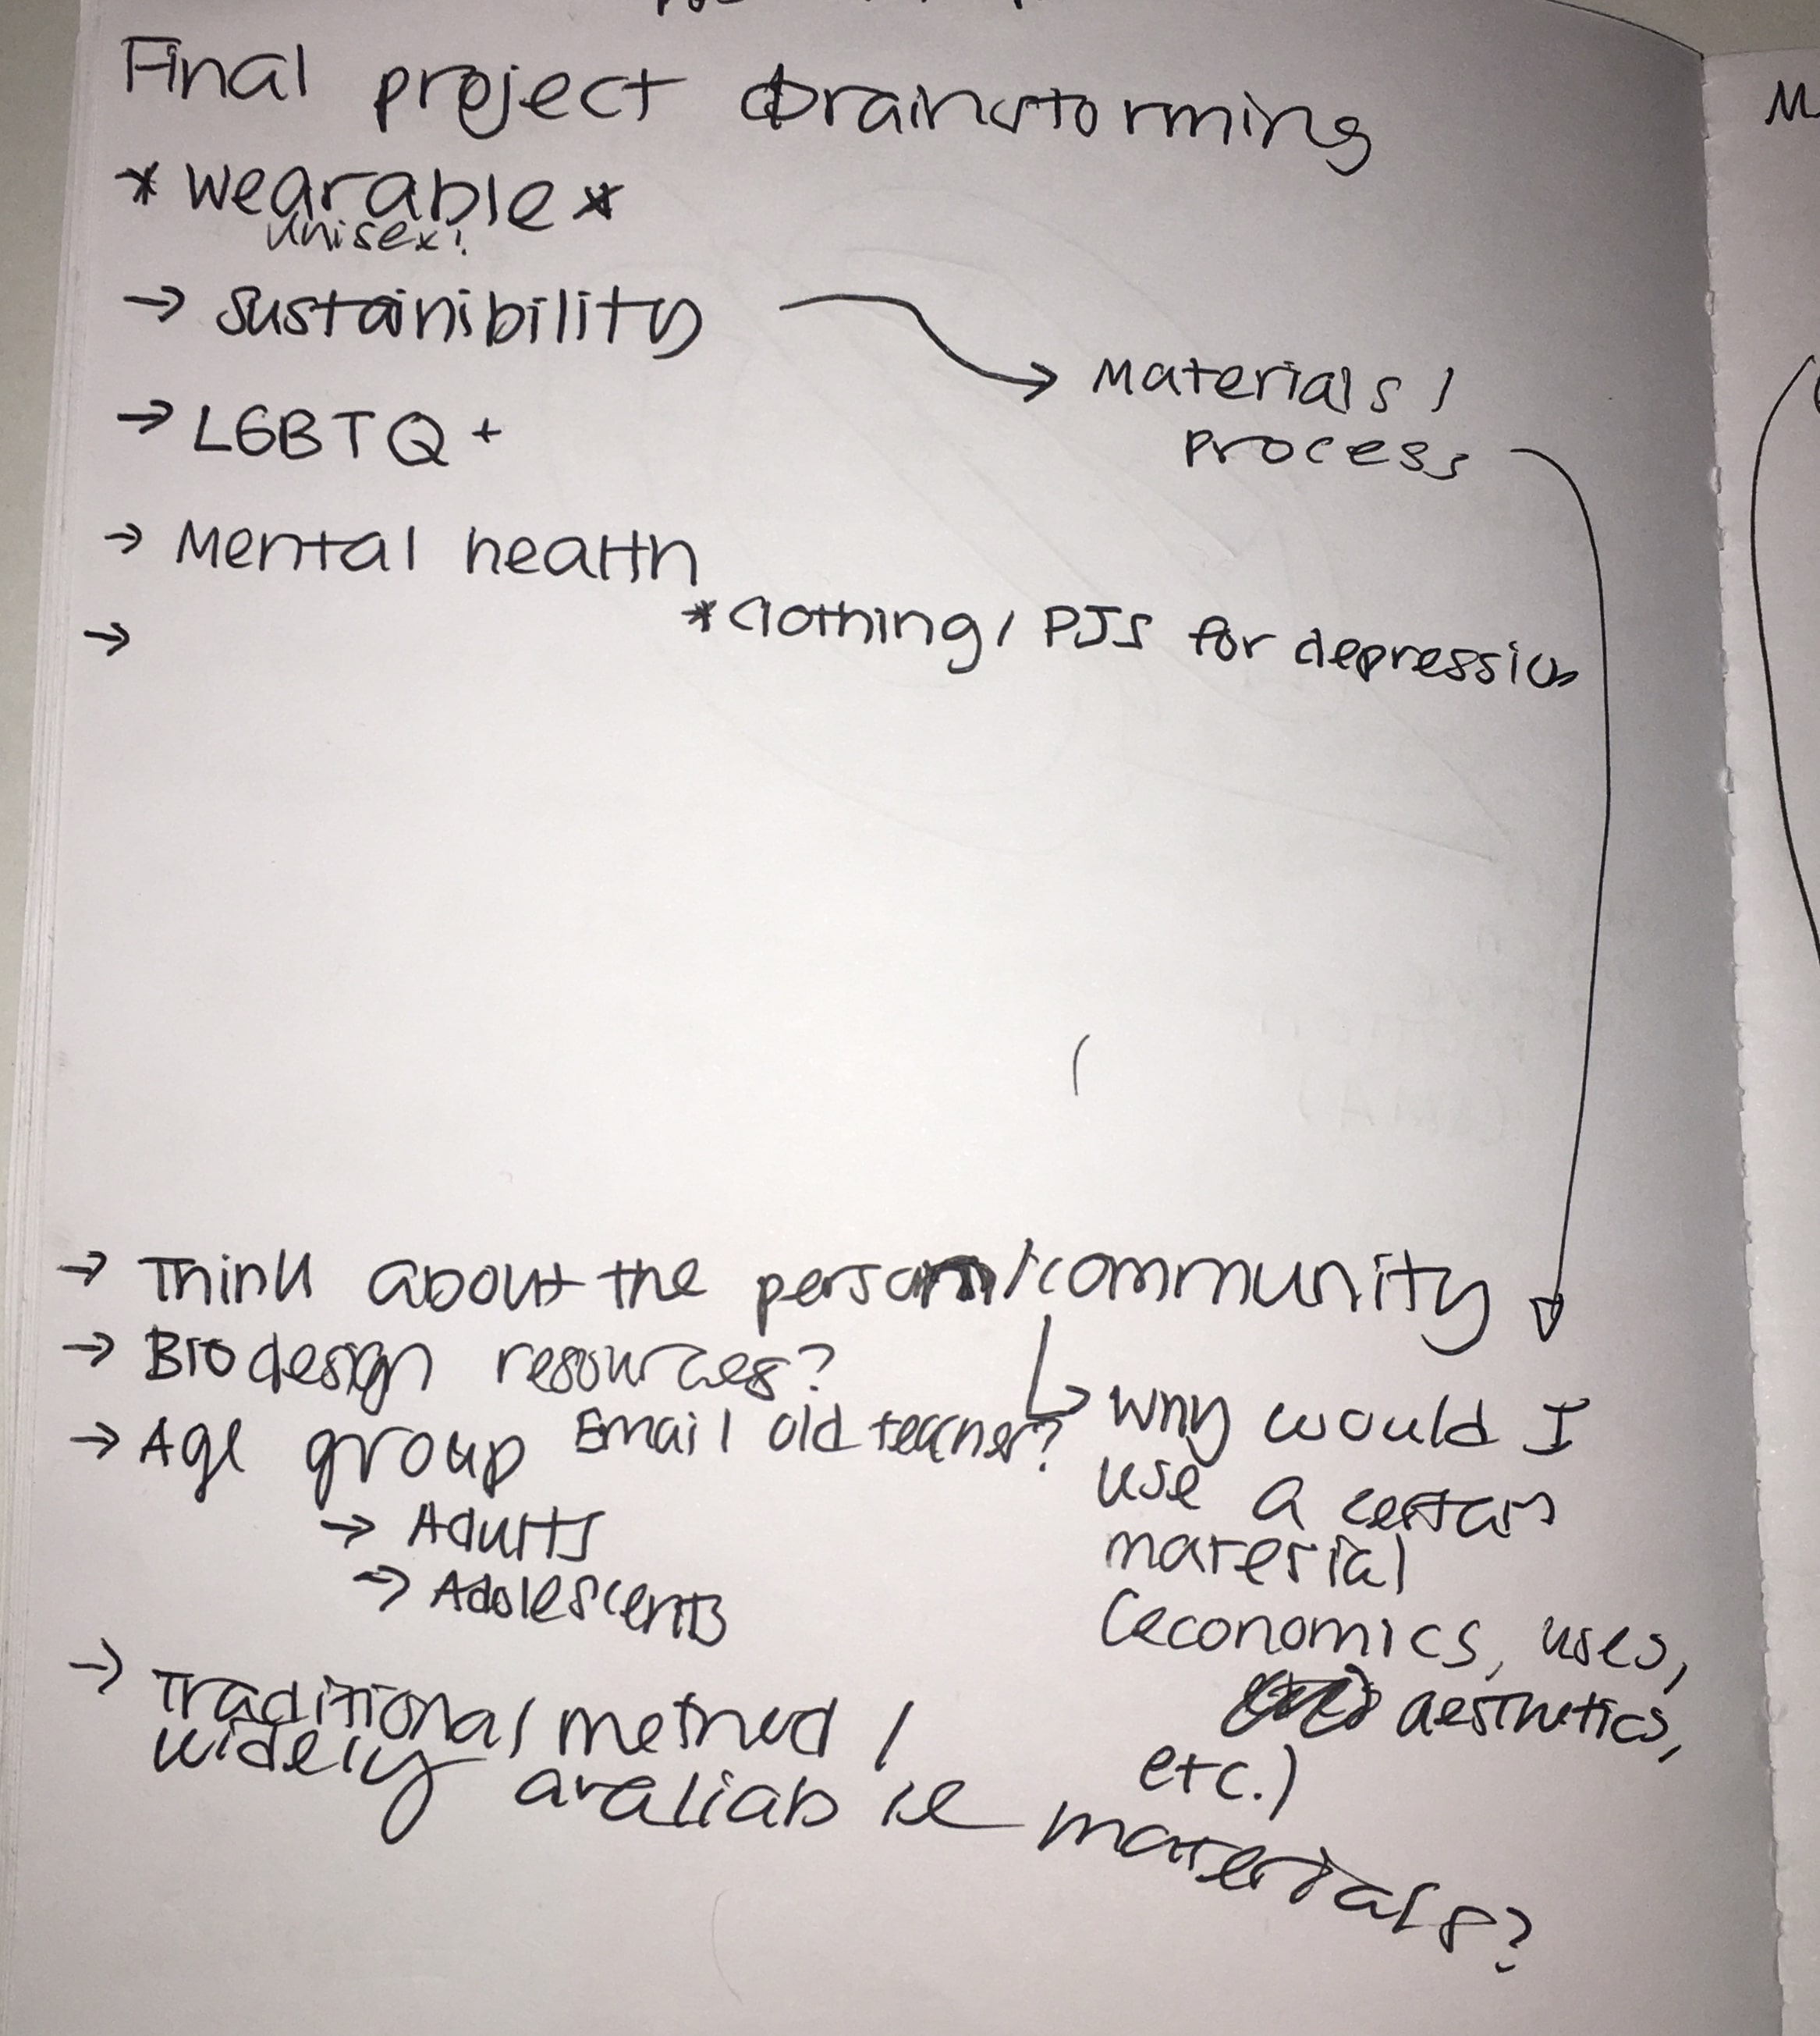 Final project brainstorming
* Wearable *
unisex!
→ Sustainibility
Materials /
process
→ LGBTQ +
→ Mental health
* Clothing / PJs for depression
→
→ Think about the person/community
→ Biodesign resources?
Email old teacher?
→ Age group
→ Adults
→ Adolescents
→ Traditional method /
widely avaliable materials?
Why would I
use a certain
material
(economics, uses,
aesthetics,
etc.)
M